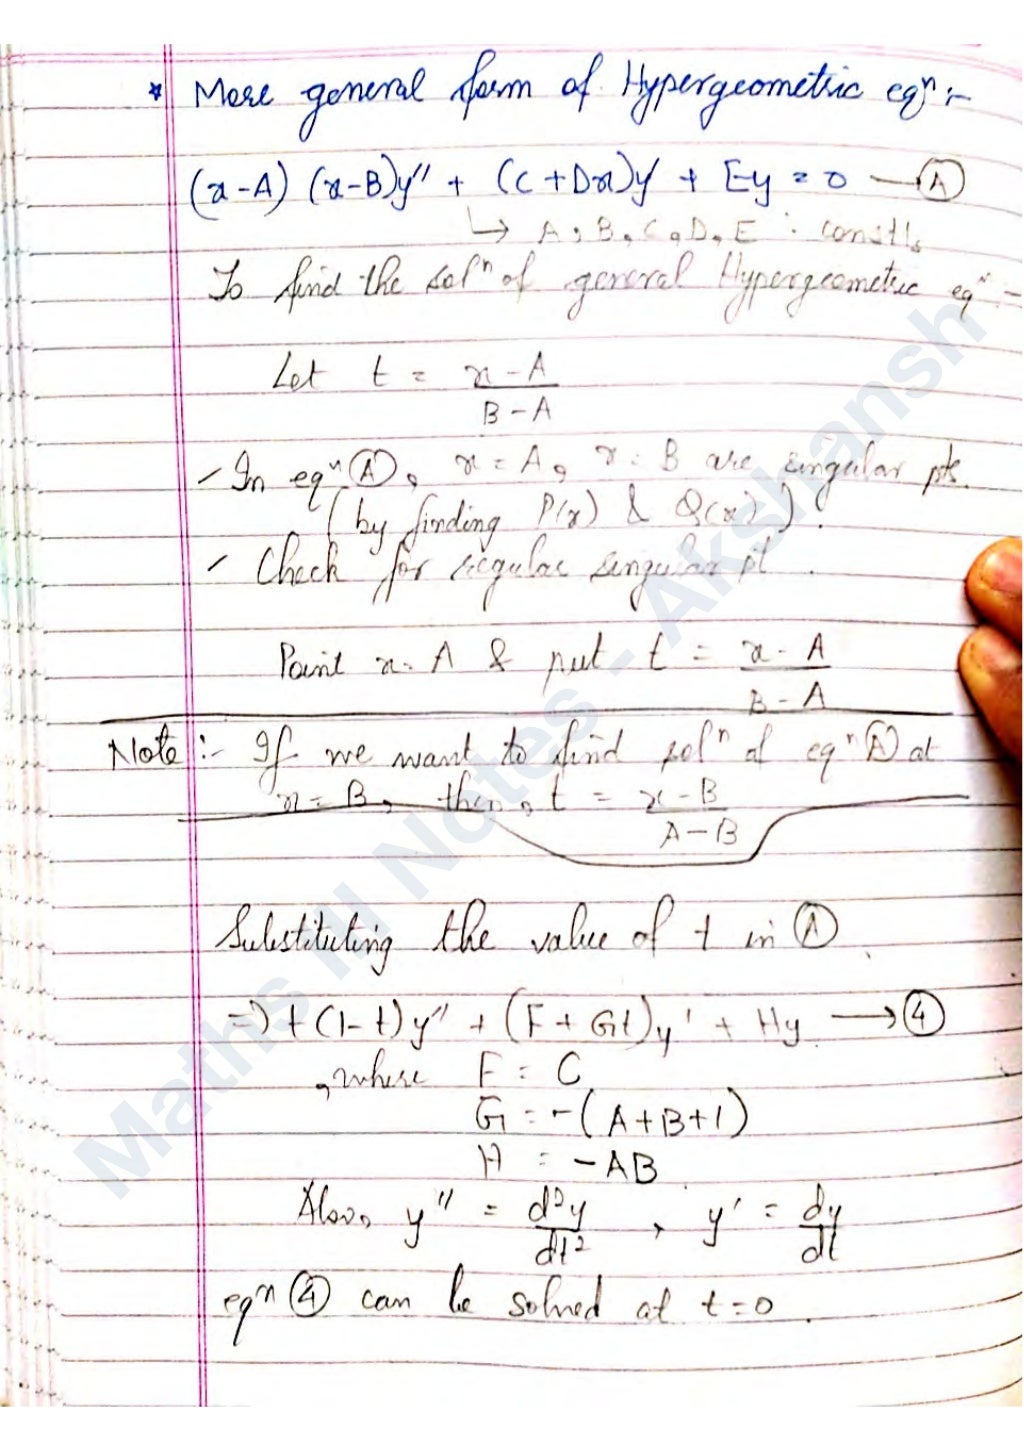 * More general form of Hypergeometric eqⁿ :-
(x-A) (x-B)y'' + (C+Dx)y' + Ey = 0 —(A)
↳ A, B, C, D, E : constts
To find the solⁿ of general Hypergeometric eqⁿ :-
Let t = (x-A)/(B-A)
✓ In eqⁿ (A), x = A, x = B are singular pts.
(by finding P(x) & Q(x)).
✓ Check for regular singular pt.
Point x = A & put t = (x-A)/(B-A)
Note :- If we want to find solⁿ of eqⁿ (A) at
x = B, then, t = (x-B)/(A-B)
Substituting the value of t in (A).
⇒ t(1-t)y'' + (F+Gt)y' + Hy. → (4)
, where F = C
G = -(A+B+1)
H = -AB
Also, y'' = d²y/dt² , y' = dy/dt
eqⁿ (4) can be solved at t=0.
Maths III Notes - Akshansh